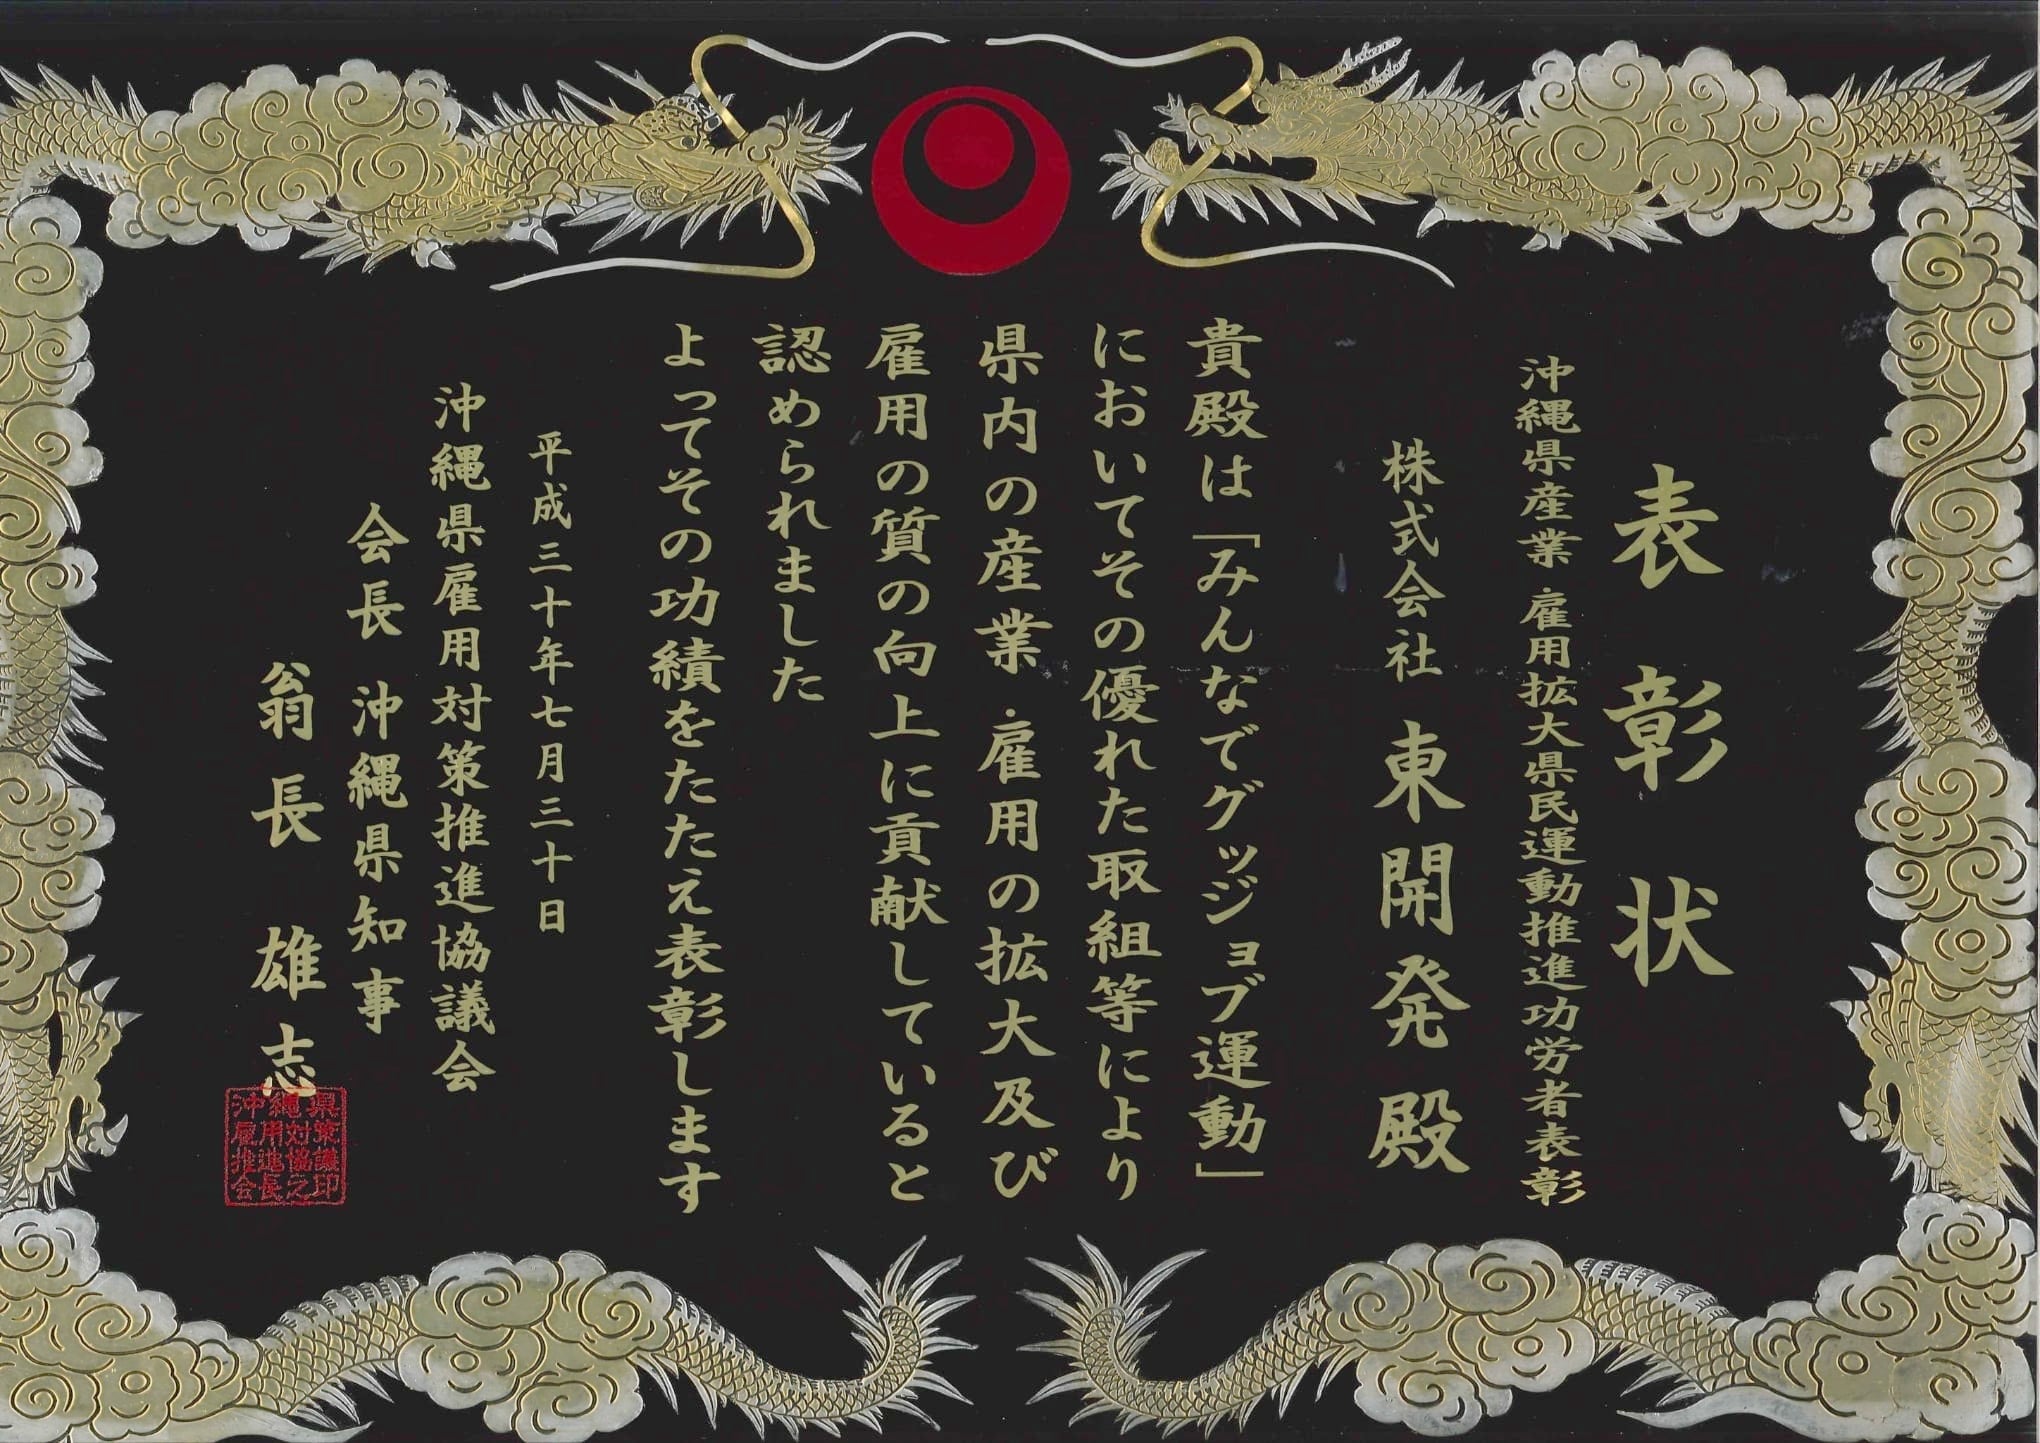 表彰状
沖縄県産業・雇用拡大県民運動推進功労者表彰
株式会社 東開発 殿
貴殿は「みんなでグッジョブ運動」
においてその優れた取組等により
県内の産業・雇用の拡大及び
雇用の質の向上に貢献していると
認められました
よってその功績をたたえ表彰します
平成三十年七月三十日
沖縄県雇用対策推進協議会
会長 沖縄県知事
翁長 雄志
沖縄県
雇用対策
推進協議
会長之印